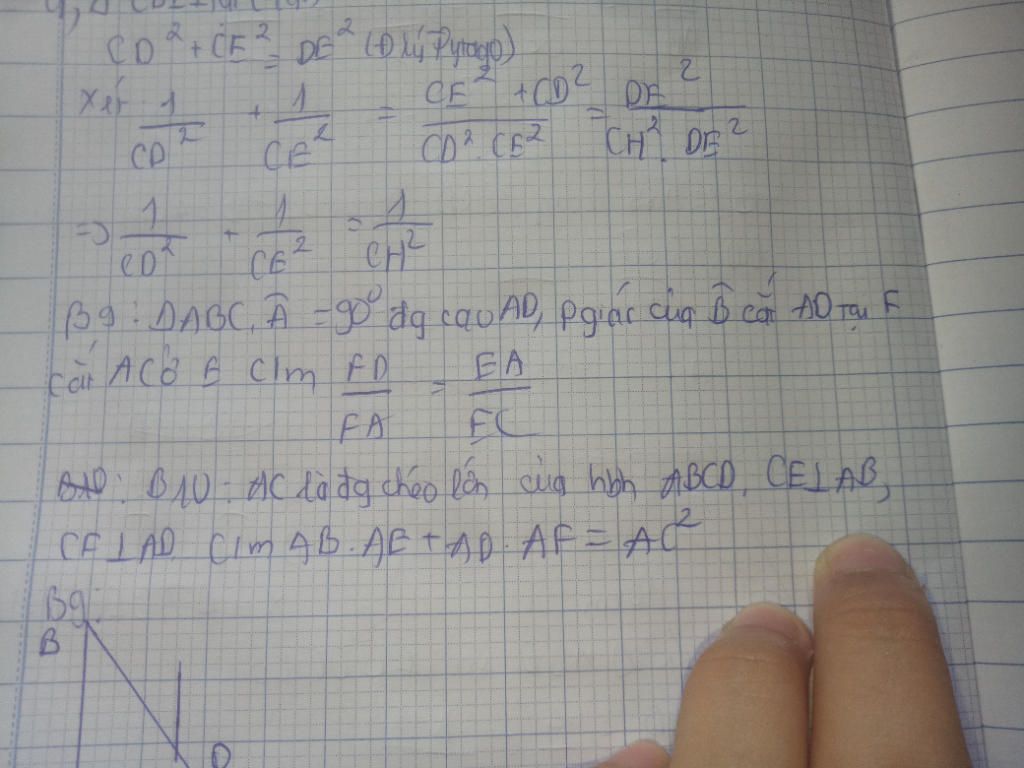 CD² + CE² = DE² (Đ lý Pytago)
Xét 1/CD² + 1/CE² = CE² + CD²/CD².CE² = DE²/CH².DE²
=> 1/CD² + 1/CE² = 1/CH²
B9: ΔABC, Â = 90° đg cao AD, pgiác của B̂ cắt AD tại F
cắt AC ở E C/m FD/FA = EA/EC
B10: AC là đg chéo lớn của hbh ABCD, CE⊥AB,
CF⊥AD C/m AB.AE + AD.AF = AC²
B9:
B
D